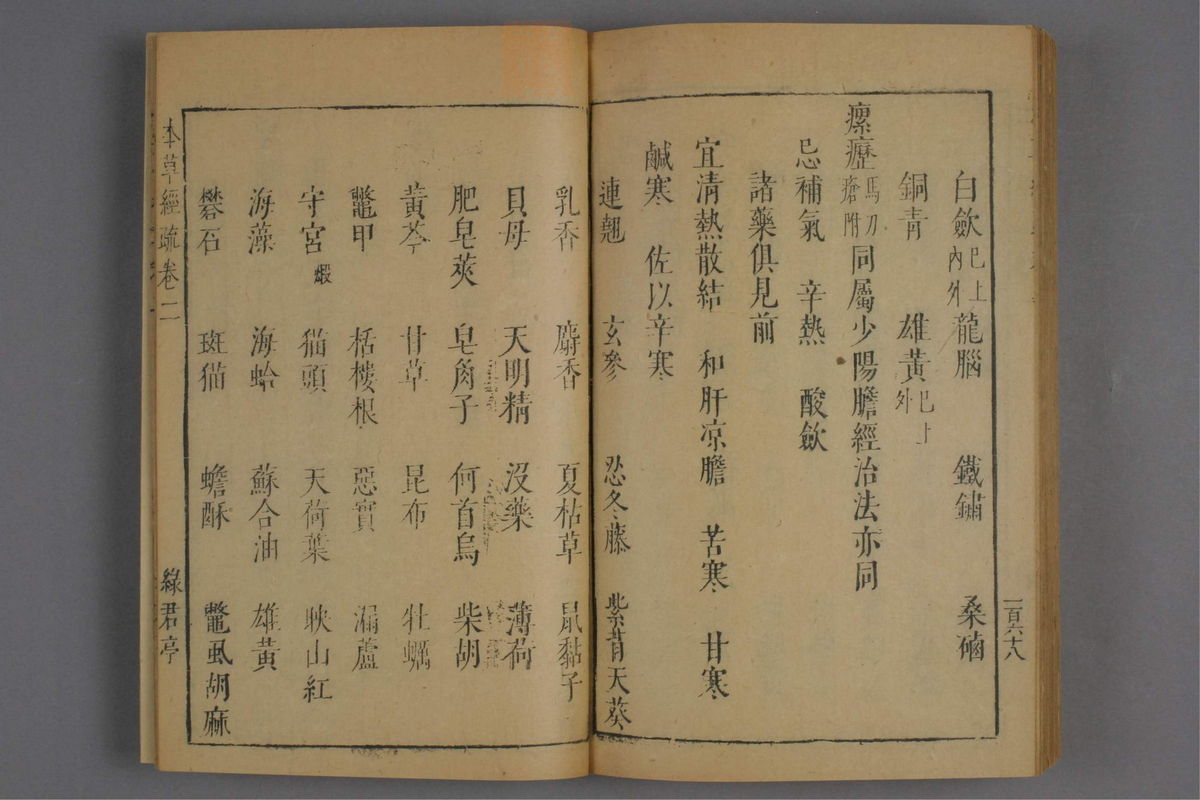 白斂已上內外 龍腦 鐵鏽 桑硇
銅青 雄黃已上外
瘰癧馬刀瘡附 同屬少陽膽經治法亦同
忌補氣 辛熱 酸斂
諸藥俱見前
宜清熱散結 和肝凉膽 苦寒 甘寒
鹹寒 佐以辛寒
連翹 玄參 忍冬藤 紫背天葵
一百六十八
乳香 麝香 夏枯草 鼠黏子
貝母 天明精 沒藥 薄荷
肥皂莢 皂角子 何首烏 柴胡
黃芩 甘草 昆布 牡蠣
鼈甲 栝樓根 惡實 漏蘆
守宮煅 猫頭 天荷葉 映山紅
海藻 海蛤 蘇合油 雄黃
礬石 斑猫 蟾酥 鼈虱胡麻
本草經疏卷二
綠君亭